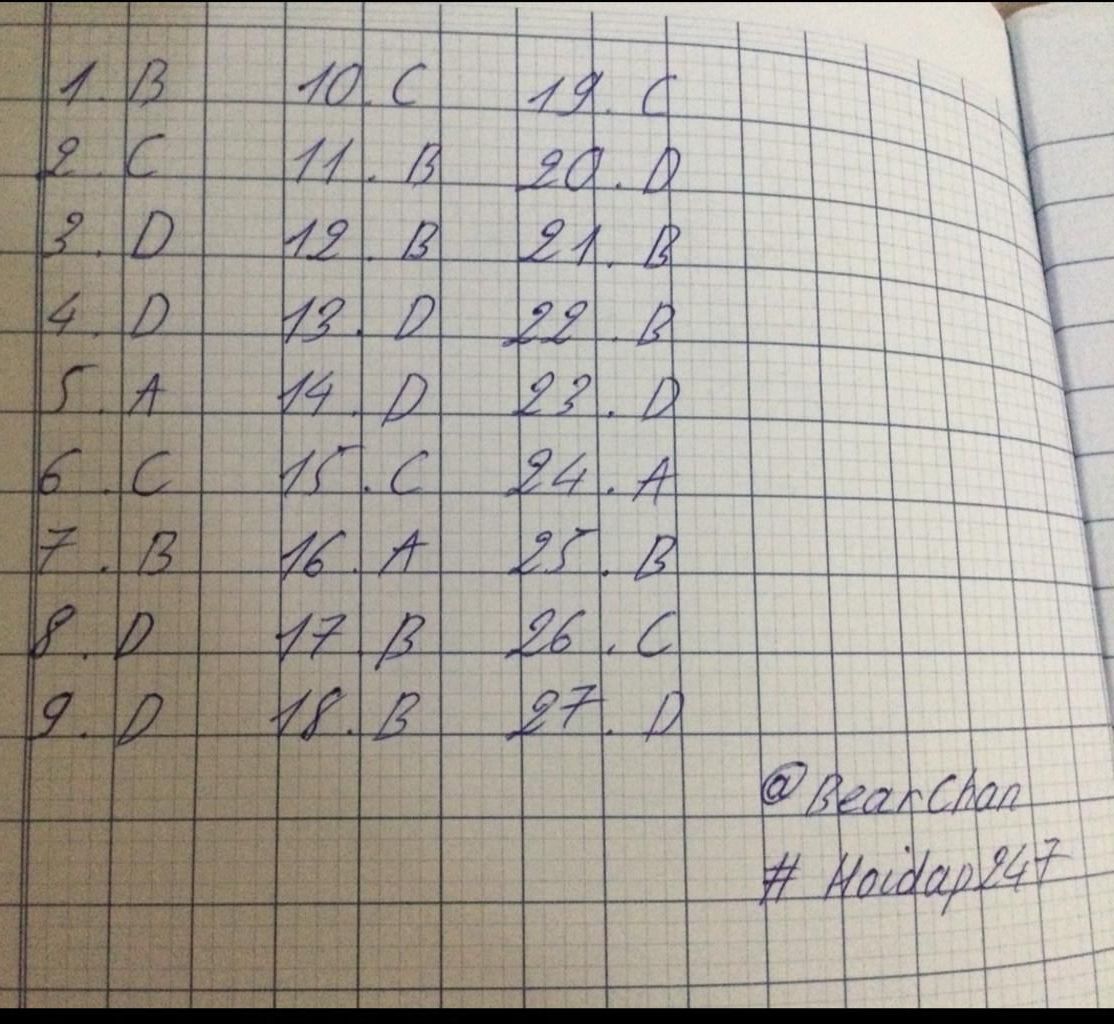 1. B 10. C 19. C
2. C 11. B 20. D
3. D 12. B 21. B
4. D 13. D 22. B
5. A 14. D 23. D
6. C 15. C 24. A
7. B 16. A 25. B
8. D 17. B 26. C
9. D 18. B 27. D
@BearChan
# Hoidap247